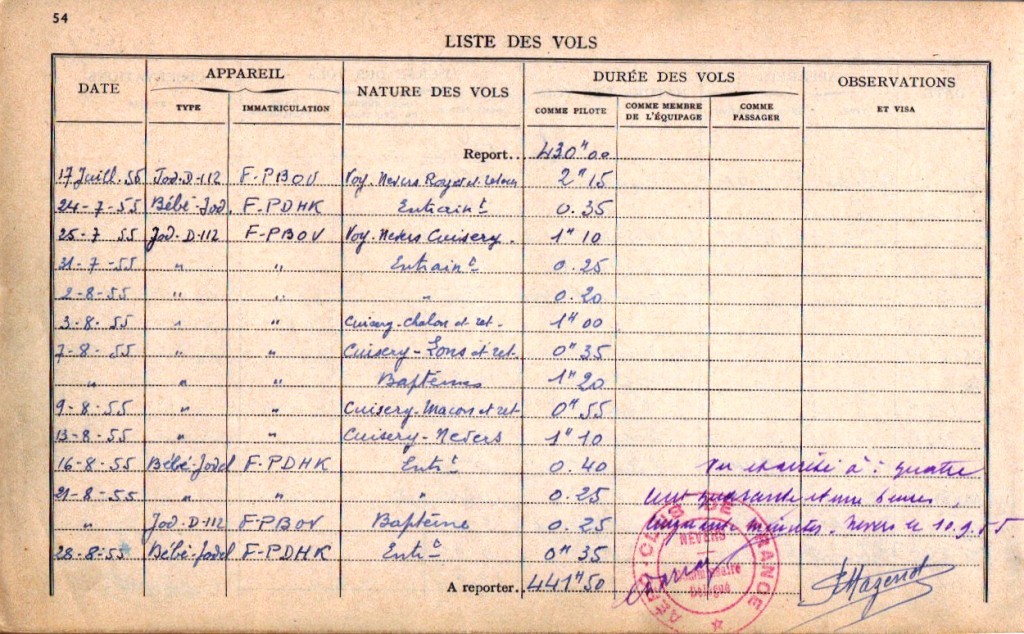 54
LISTE DES VOLS
DATE APPAREIL NATURE DES VOLS DURÉE DES VOLS OBSERVATIONS ET VISA
TYPE IMMATRICULATION COMME PILOTE COMME MEMBRE DE L'ÉQUIPAGE COMME PASSAGER
Report... 430h00
17 Juill. 55 Jod. D-112 F-PBOV Voy. Nevers Royat et retour 2h15
24-7-55 Bébé-Jod. F-PDHK Entraint 0.35
25-7 55 Jod-D-112 F-PBOV Voy. Nevers Cuisery. 1h10
31-7-55 " " Entraint 0.25
2-8-55 " " " 0.20
3-8-55 " " Cuisery-Chalon et ret- 1h00
7-8-55 " " Cuisery-Lons et ret- 0h35
" " " Baptêmes 1h20
9-8-55 " " Cuisery-Macon et ret 0h55
13-8-55 " " Cuisery-Nevers 1h10
16-8-55 Bébé-Jodel F-PDHK Entt 0.40 Vu et arrêté à : quatre
21-8-55 " " " 0.25 cent quarante et une heures
" Jod-D-112 F-PBOV Baptême 0.25 cinquante minutes. Nevers le 10.9.55
28-8-55 Bébé-Jodel F-PDHK Entt 0h35
A reporter. 441h50
AÉRO-CLUB DE FRANCE
NEVERS
Commissaire
Délégué